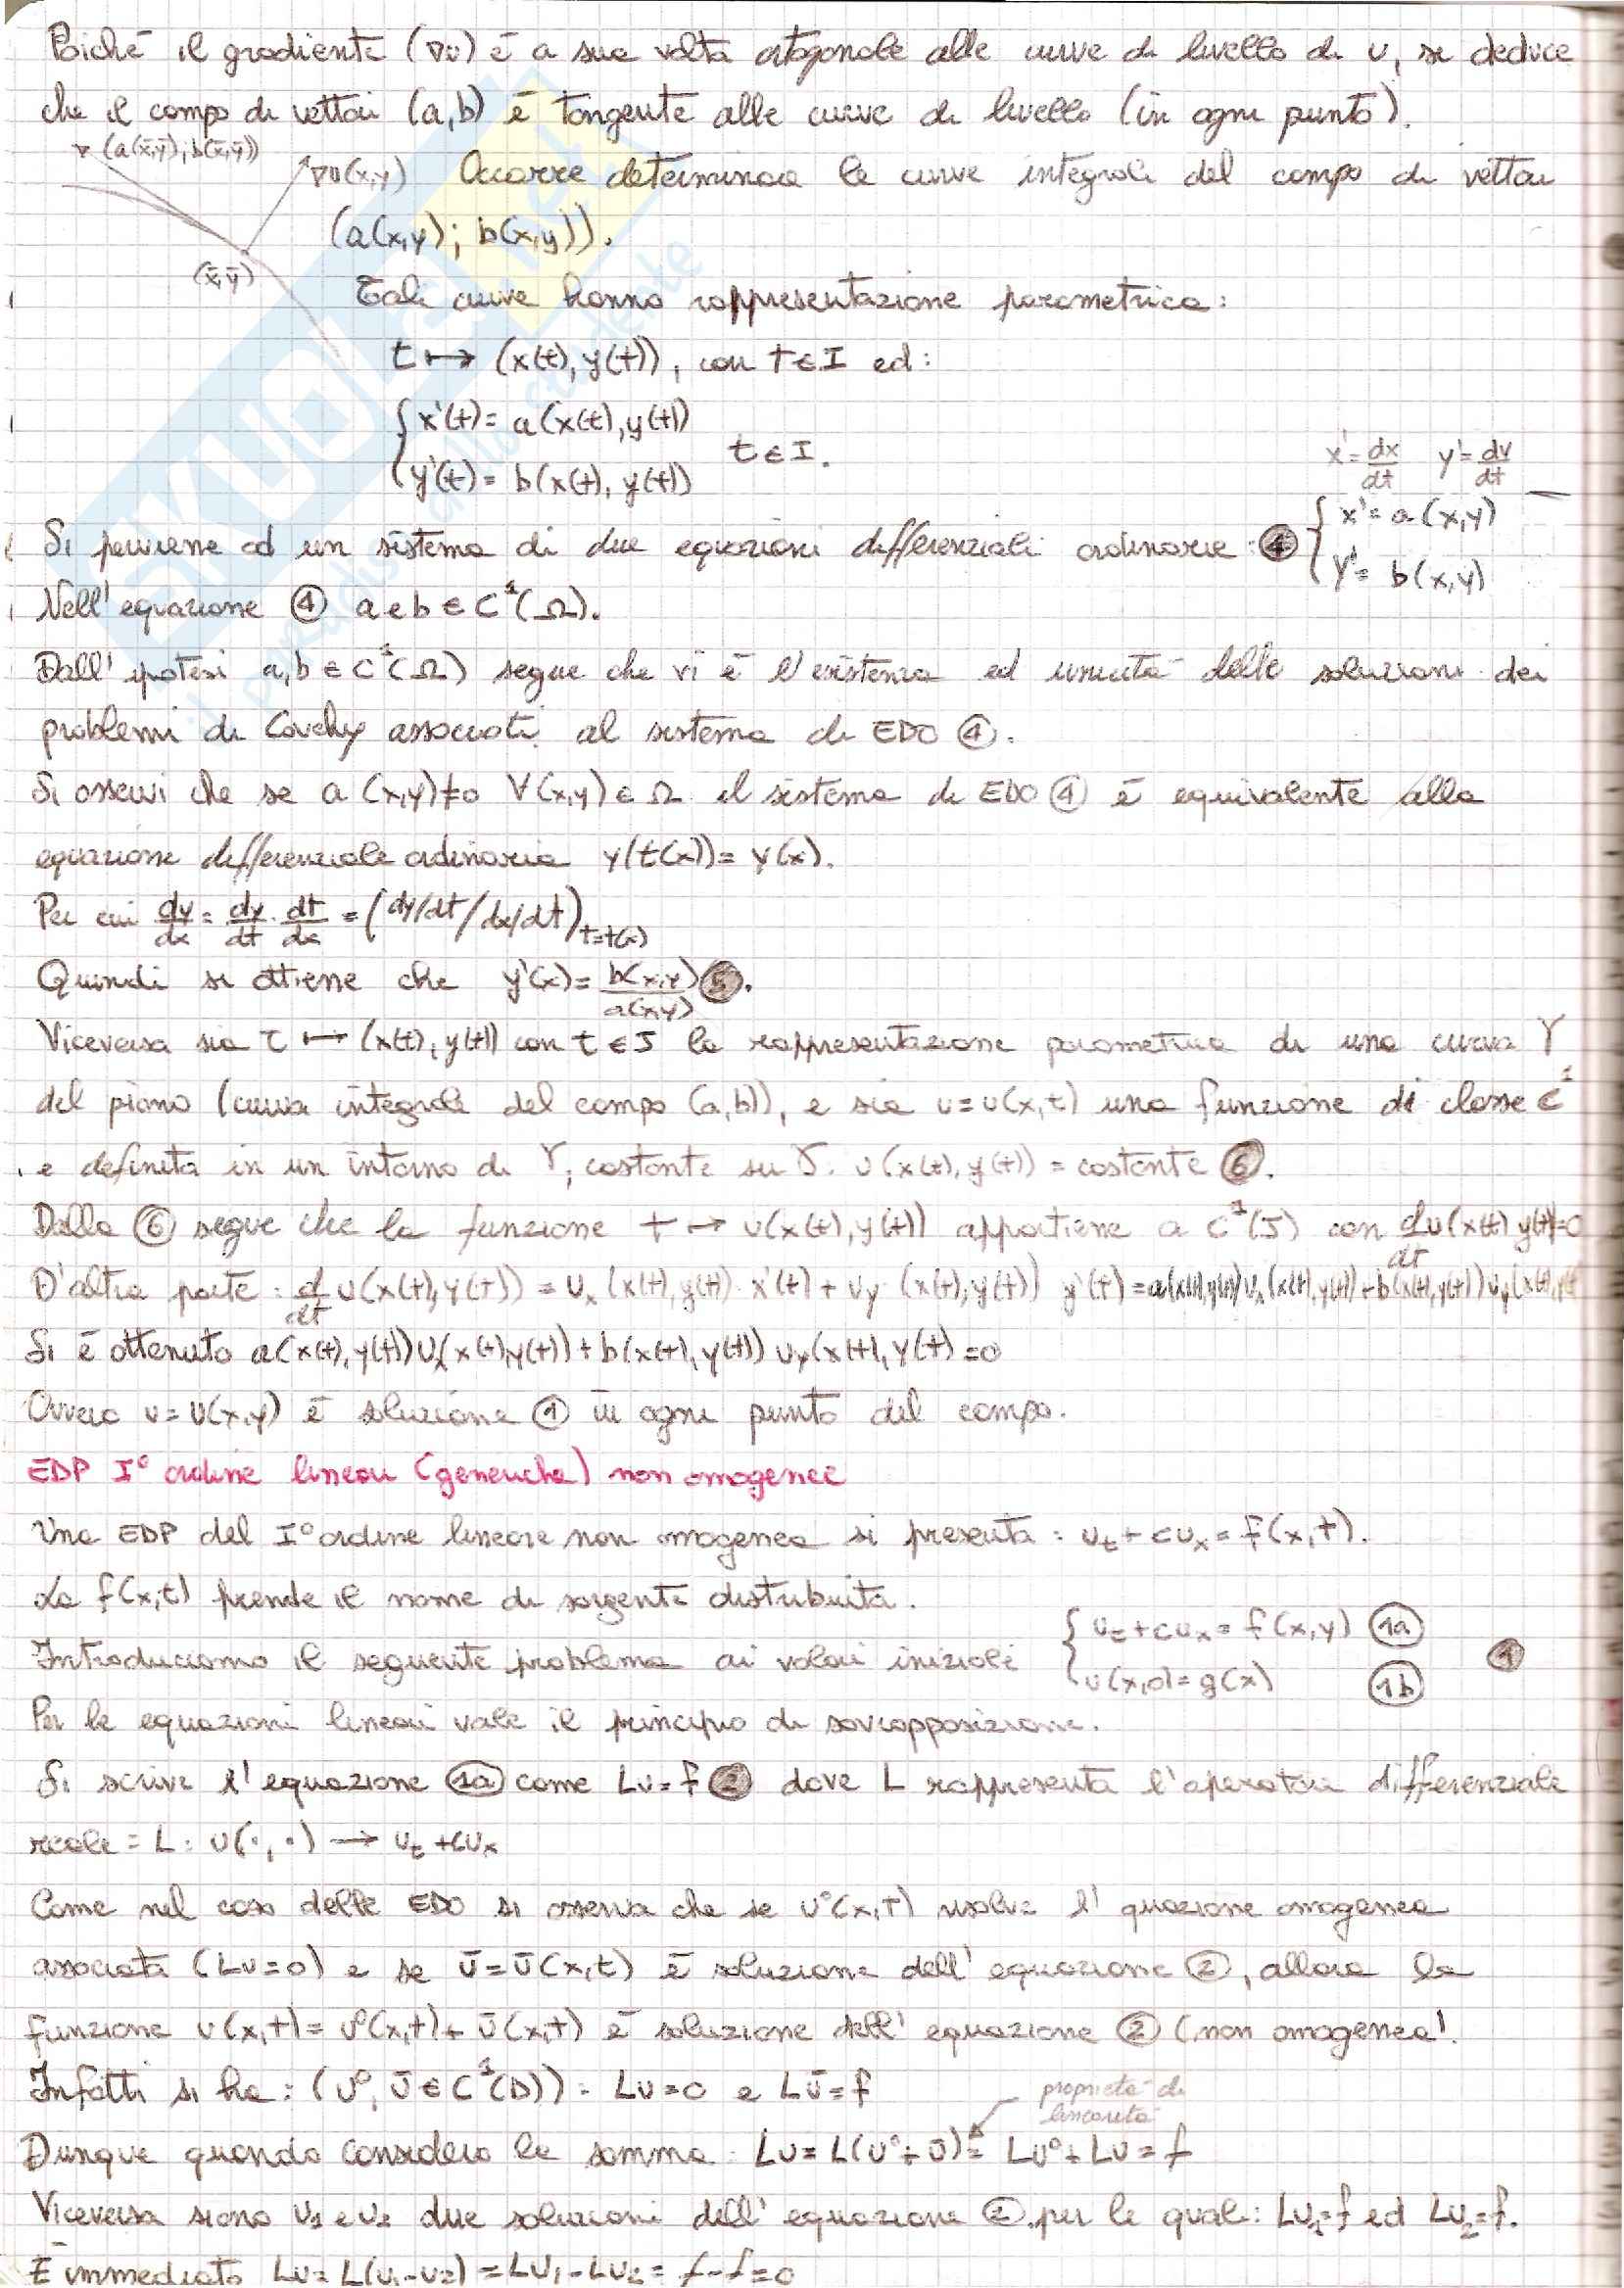 Poiché il gradiente (∇u) è a sua volta ortogonale alle curve di livello di u, si deduce
che il campo di vettori (a,b) è tangente alle curve di livello (in ogni punto).
(a(x̄,ȳ), b(x̄,ȳ))
∇u(x,y) Occorre determinare le curve integrali del campo di vettori
(a(x,y); b(x,y)).
(x̄,ȳ)
Tali curve hanno rappresentazione parametrica:
t ↦ (x(t), y(t)), con t ∈ I ed:
{ x'(t) = a(x(t), y(t))
{ y'(t) = b(x(t), y(t)) t ∈ I.
x' = dx/dt y' = dy/dt
Si perviene ad un sistema di due equazioni differenziali ordinarie: ④ { x' = a(x,y)
{ y' = b(x,y)
Nell'equazione ④ a e b ∈ C¹(Ω).
Dall'ipotesi a,b ∈ C¹(Ω) segue che vi è l'esistenza ed unicità delle soluzioni dei
problemi di Cauchy associati al sistema di EDO ④.
Si osservi che se a(x,y)≠0 ∀(x,y) ∈ Ω il sistema di EDO ④ è equivalente alla
equazione differenziale ordinaria y(t(x)) = y(x).
Per cui dy/dx = dy/dt · dt/dx = (dy/dt / dx/dt) t=t(x)
Quindi si ottiene che y'(x) = b(x,y)/a(x,y) ⑤.
Viceversa sia t ↦ (x(t), y(t)) con t ∈ J la rappresentazione parametrica di una curva γ
del piano (curva integrale del campo (a,b)), e sia u=u(x,t) una funzione di classe C¹
e definita in un intorno di γ, costante su γ. u(x(t), y(t)) = costante ⑥.
Dalla ⑥ segue che la funzione t → u(x(t), y(t)) appartiene a C¹(J) con d/dt u(x(t) y(t))=0
D'altra parte: d/dt u(x(t), y(t)) = ux (x(t), y(t)) · x'(t) + uy (x(t), y(t)) y'(t) = a(x(t), y(t)) ux (x(t), y(t)) + b(x(t), y(t)) uy (x(t), y(t)
Si è ottenuto a(x(t), y(t)) ux(x(t), y(t)) + b(x(t), y(t)) uy(x(t), y(t) = 0
Ovvero u=u(x,y) è soluzione ① in ogni punto del campo.
EDP I° ordine lineari (generiche) non omogenee
Una EDP del I° ordine lineare non omogenea si presenta: ut + cux = f(x,t).
La f(x,t) prende il nome di sorgente distribuita.
Introduciamo il seguente problema ai valori iniziali { ut + cux = f(x,y) (1a)
{ u(x,0) = g(x) (1b) ①
Per le equazioni lineari vale il principio di sovrapposizione.
Si scrive l'equazione (1a) come Lu=f ② dove L rappresenta l'operatore differenziale
reale = L: u(·,·) → ut + cux
Come nel caso delle EDO si osserva che se u°(x,t) risolve l'quazione omogenea
associata (Lu=0) e se ū=ū(x,t) è soluzione dell'equazione ②, allora la
funzione u(x,t) = u°(x,t) + ū(x,t) è soluzione dell'equazione ② (non omogenea).
Infatti si ha: (u°, ū ∈ C¹(D)): Lu=0 e Lū=f
proprietà di
linearità
Dunque quando considero la somma: Lu = L(u°+ū) = Lu° + Lu = f
Viceversa siano u1 e u2 due soluzioni dell'equazione ② per le quali: Lu1=f ed Lu2=f.
È immediato Lu = L(u1-u2) = Lu1-Lu2 = f-f=0